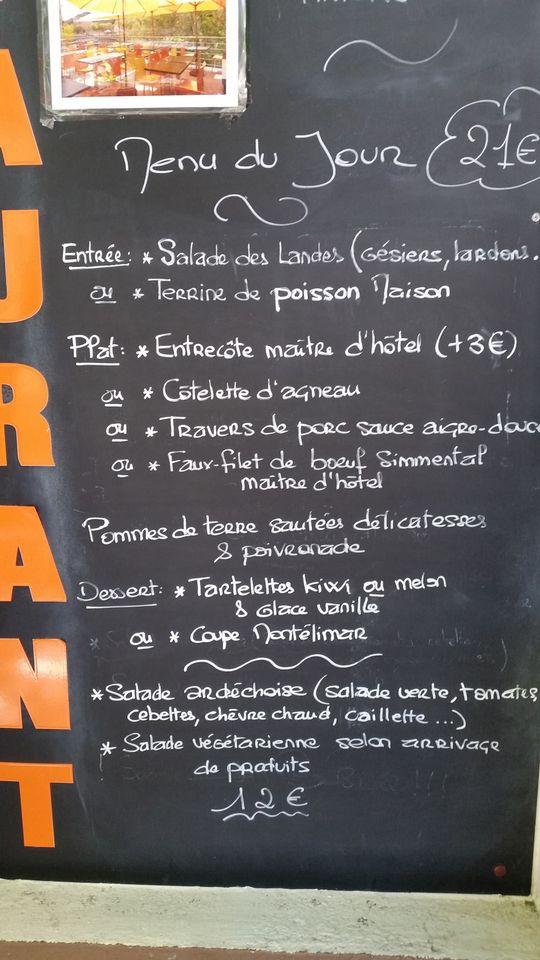 Menu du Jour 21€
Entrée: * Salade des Landes (Gésiers, lardons.
ou * Terrine de poisson Maison
Plat: * Entrecôte maître d'hôtel (+3€)
ou * Côtelette d'agneau
ou * Travers de porc sauce aigre-douce
ou * Faux-filet de boeuf Simmental
maître d'hôtel
Pommes de terre sautées délicatesses
& poivronade
Dessert: * Tartelettes kiwi ou melon
& Glace vanille
ou * Coupe Montélimar
* Salade ardéchoise (salade verte, tomates,
cebettes, chèvre chaud, caillette ...)
* Salade végétarienne selon arrivage
de produits
12€
AURANT